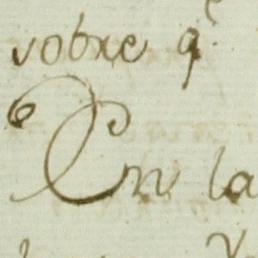 sobre q^e
En la